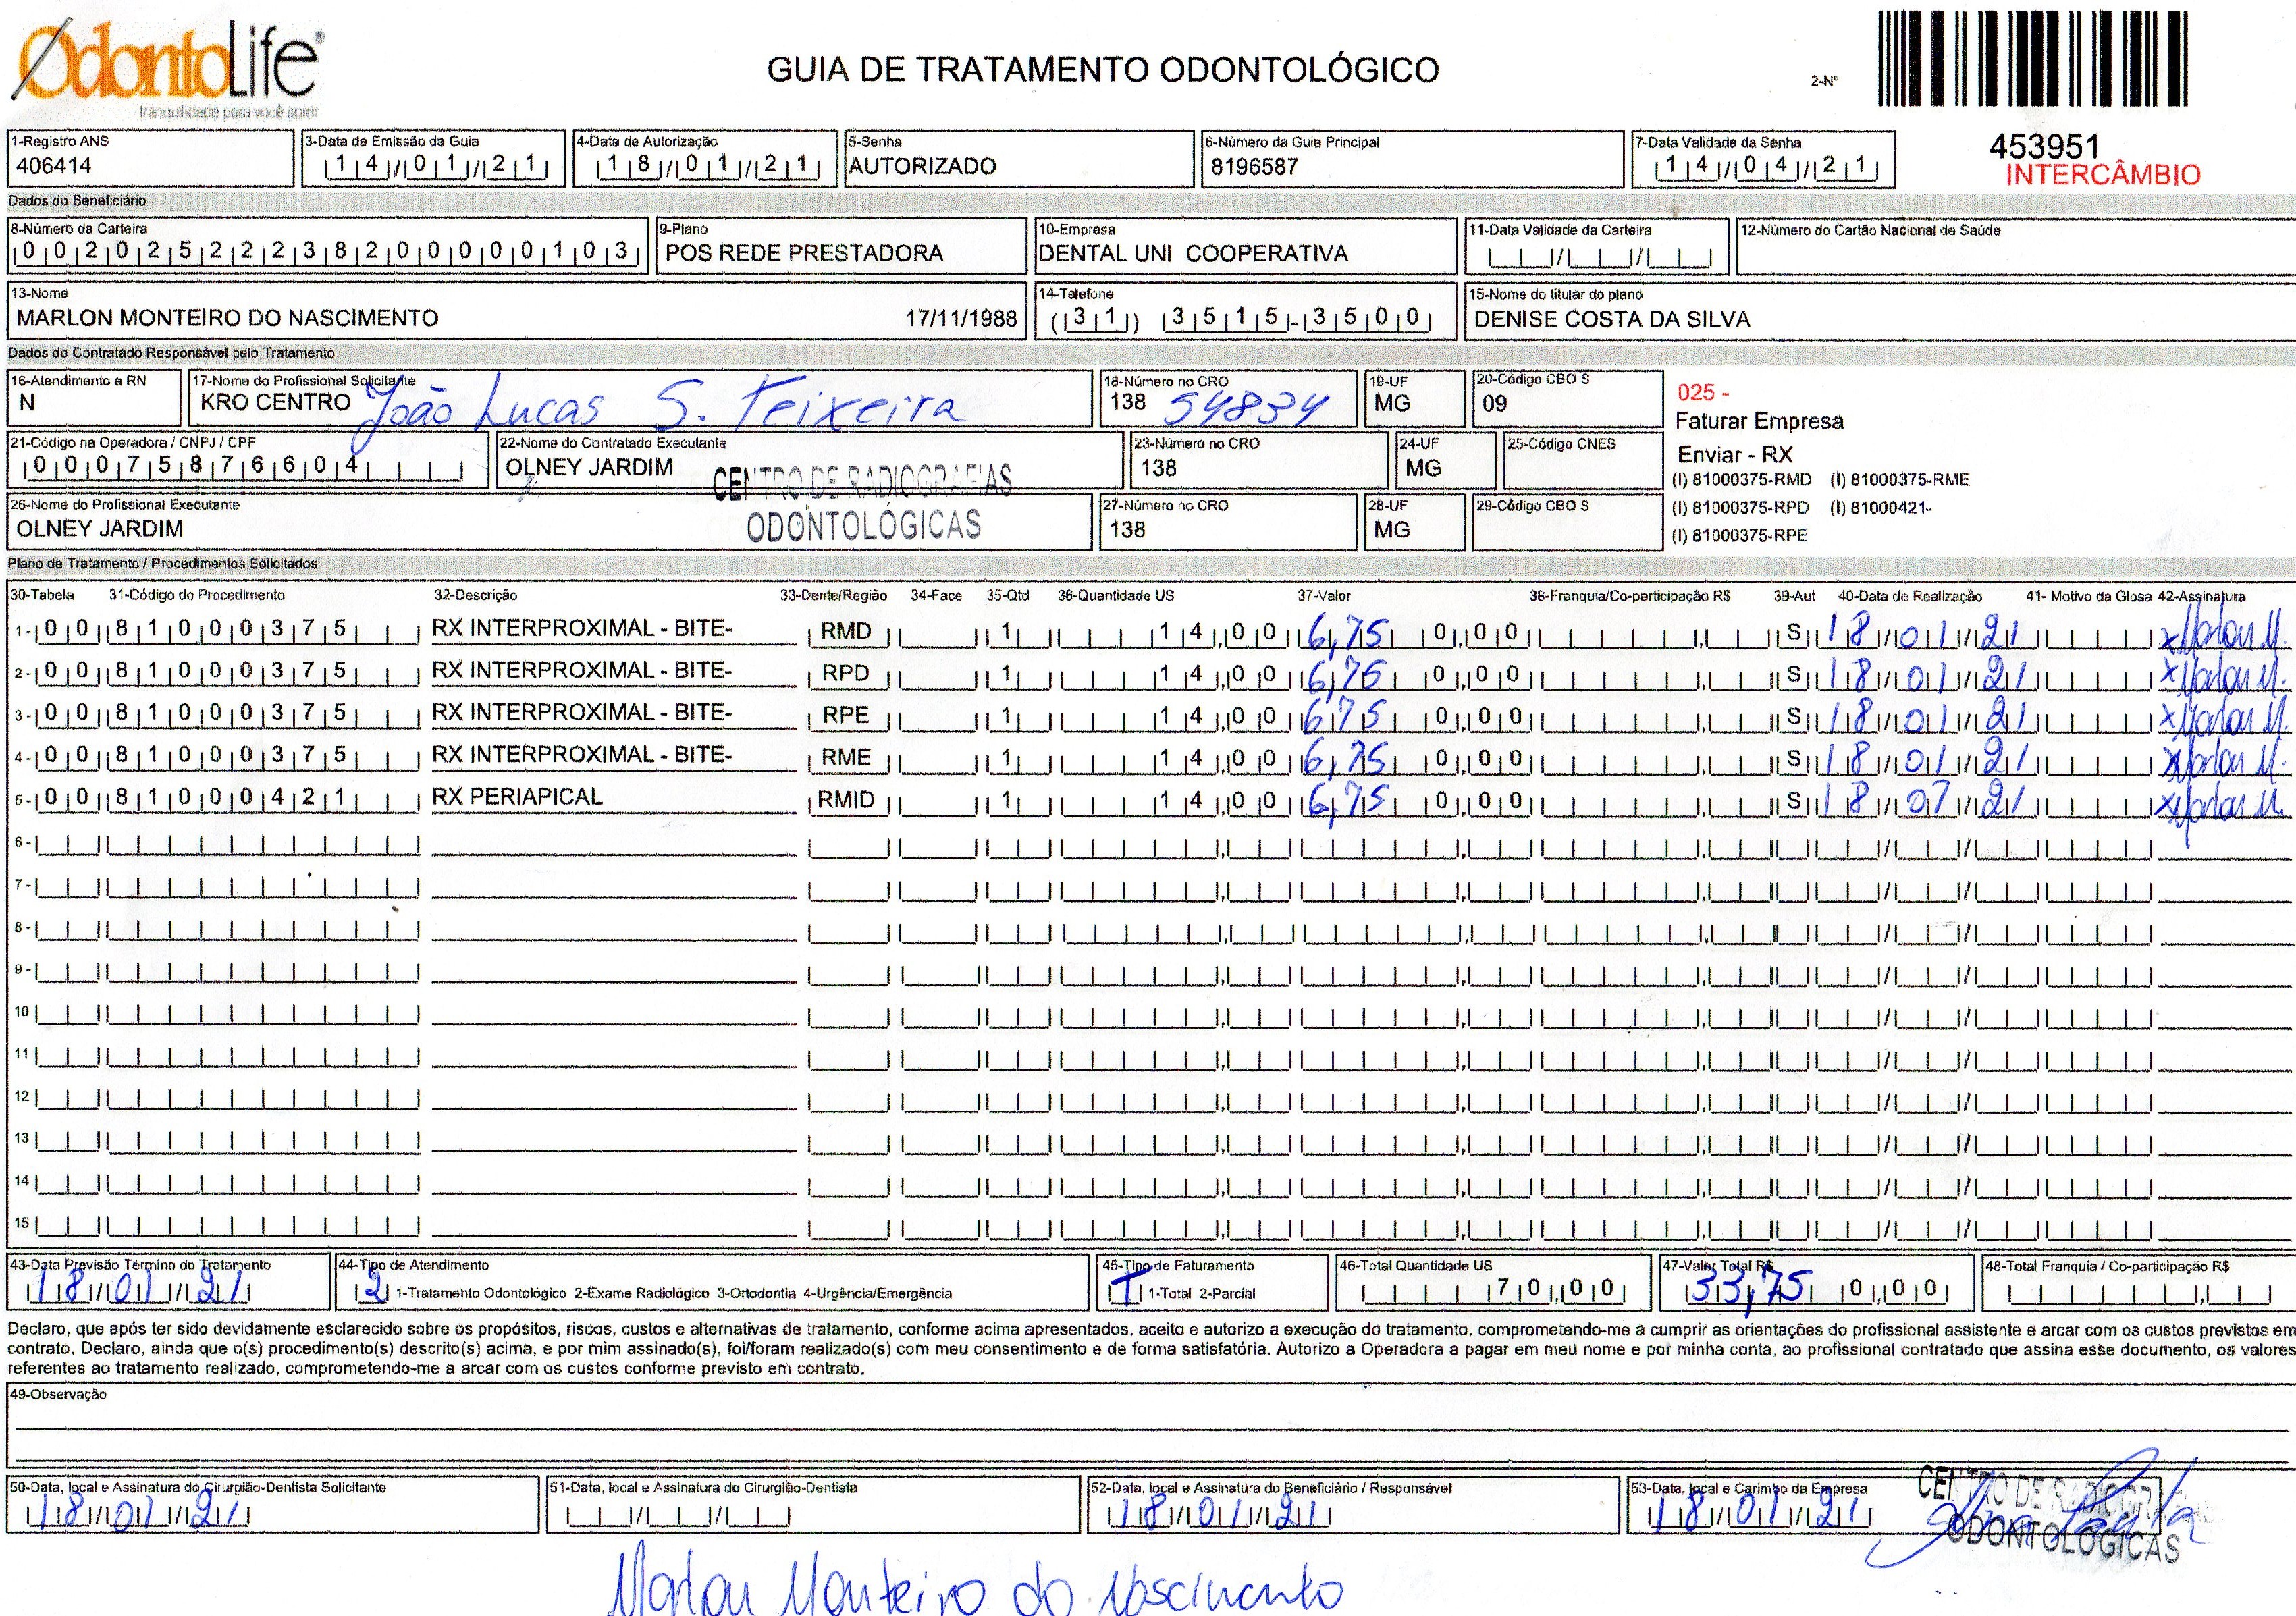 OdontoLife®
tranquilidade para você sorrir
GUIA DE TRATAMENTO ODONTOLÓGICO
2-Nº
453951
INTERCÂMBIO
1-Registro ANS
406414
3-Data de Emissão da Guia
14/01/21
4-Data de Autorização
18/01/21
5-Senha
AUTORIZADO
6-Número da Guia Principal
8196587
7-Data Validade da Senha
14/04/21
Dados do Beneficiário
8-Número da Carteira
00202522238200000103
9-Plano
POS REDE PRESTADORA
10-Empresa
DENTAL UNI COOPERATIVA
11-Data Validade da Carteira
12-Número do Cartão Nacional de Saúde
13-Nome
MARLON MONTEIRO DO NASCIMENTO 17/11/1988
14-Telefone
(31) 3515-3500
15-Nome do titular do plano
DENISE COSTA DA SILVA
Dados do Contratado Responsável pelo Tratamento
16-Atendimento a RN
N
17-Nome do Profissional Solicitante
KRO CENTRO João Lucas S. Teixeira
18-Número no CRO
138 54834
19-UF
MG
20-Código CBO S
09
025 -
Faturar Empresa
Enviar - RX
(I) 81000375-RMD (I) 81000375-RME
(I) 81000375-RPD (I) 81000421-
(I) 81000375-RPE
21-Código na Operadora / CNPJ / CPF
00075876604
22-Nome do Contratado Executante
OLNEY JARDIM
CENTRO DE RADIOGRAFIAS
ODONTOLÓGICAS
23-Número no CRO
138
24-UF
MG
25-Código CNES
26-Nome do Profissional Executante
OLNEY JARDIM
27-Número no CRO
138
28-UF
MG
29-Código CBO S
Plano de Tratamento / Procedimentos Solicitados
30-Tabela 31-Código do Procedimento 32-Descrição 33-Dente/Região 34-Face 35-Qtd 36-Quantidade US 37-Valor 38-Franquia/Co-participação R$ 39-Aut 40-Data de Realização 41- Motivo da Glosa 42-Assinatura
1- 00 81000375 RX INTERPROXIMAL - BITE- RMD 1 14,00 6,75 0,00 S 18/01/21 x Marlon M.
2- 00 81000375 RX INTERPROXIMAL - BITE- RPD 1 14,00 6,75 0,00 S 18/01/21 x Marlon M.
3- 00 81000375 RX INTERPROXIMAL - BITE- RPE 1 14,00 6,75 0,00 S 18/01/21 x Marlon M.
4- 00 81000375 RX INTERPROXIMAL - BITE- RME 1 14,00 6,75 0,00 S 18/01/21 x Marlon M.
5- 00 81000421 RX PERIAPICAL RMID 1 14,00 6,75 0,00 S 18/07/21 x Marlon M.
6-
7-
8-
9-
10
11
12
13
14
15
43-Data Previsão Término do Tratamento
18/01/21
44-Tipo de Atendimento
2 1-Tratamento Odontológico 2-Exame Radiológico 3-Ortodontia 4-Urgência/Emergência
45-Tipo de Faturamento
T 1-Total 2-Parcial
46-Total Quantidade US
70,00
47-Valor Total R$
33,75 0,00
48-Total Franquia / Co-participação R$
Declaro, que após ter sido devidamente esclarecido sobre os propósitos, riscos, custos e alternativas de tratamento, conforme acima apresentados, aceito e autorizo a execução do tratamento, comprometendo-me a cumprir as orientações do profissional assistente e arcar com os custos previstos em
contrato. Declaro, ainda que o(s) procedimento(s) descrito(s) acima, e por mim assinado(s), foi/foram realizado(s) com meu consentimento e de forma satisfatória. Autorizo a Operadora a pagar em meu nome e por minha conta, ao profissional contratado que assina esse documento, os valores
referentes ao tratamento realizado, comprometendo-me a arcar com os custos conforme previsto em contrato.
49-Observação
50-Data, local e Assinatura do Cirurgião-Dentista Solicitante
18/01/21
51-Data, local e Assinatura do Cirurgião-Dentista
52-Data, local e Assinatura do Beneficiário / Responsável
18/01/21
53-Data, local e Carimbo da Empresa
18/01/21
CENTRO DE RADIOGRA
ODONTOLÓGICAS
Marlon Monteiro do Nascimento